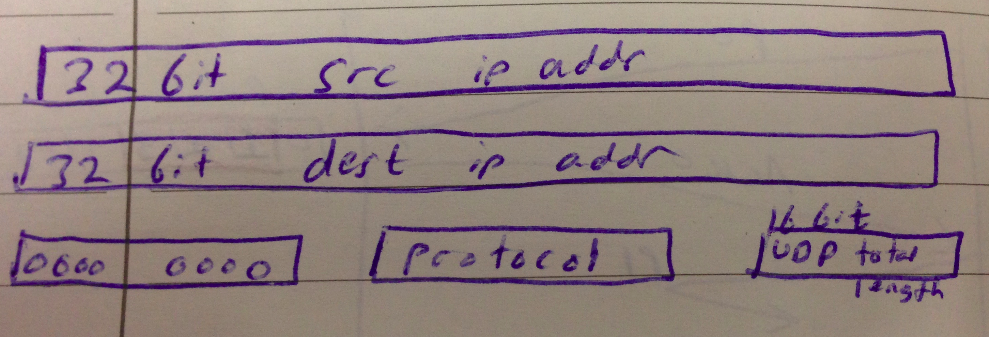 32 bit src ip addr
32 bit dest ip addr
16 bit
0000 0000 protocol UDP total
length